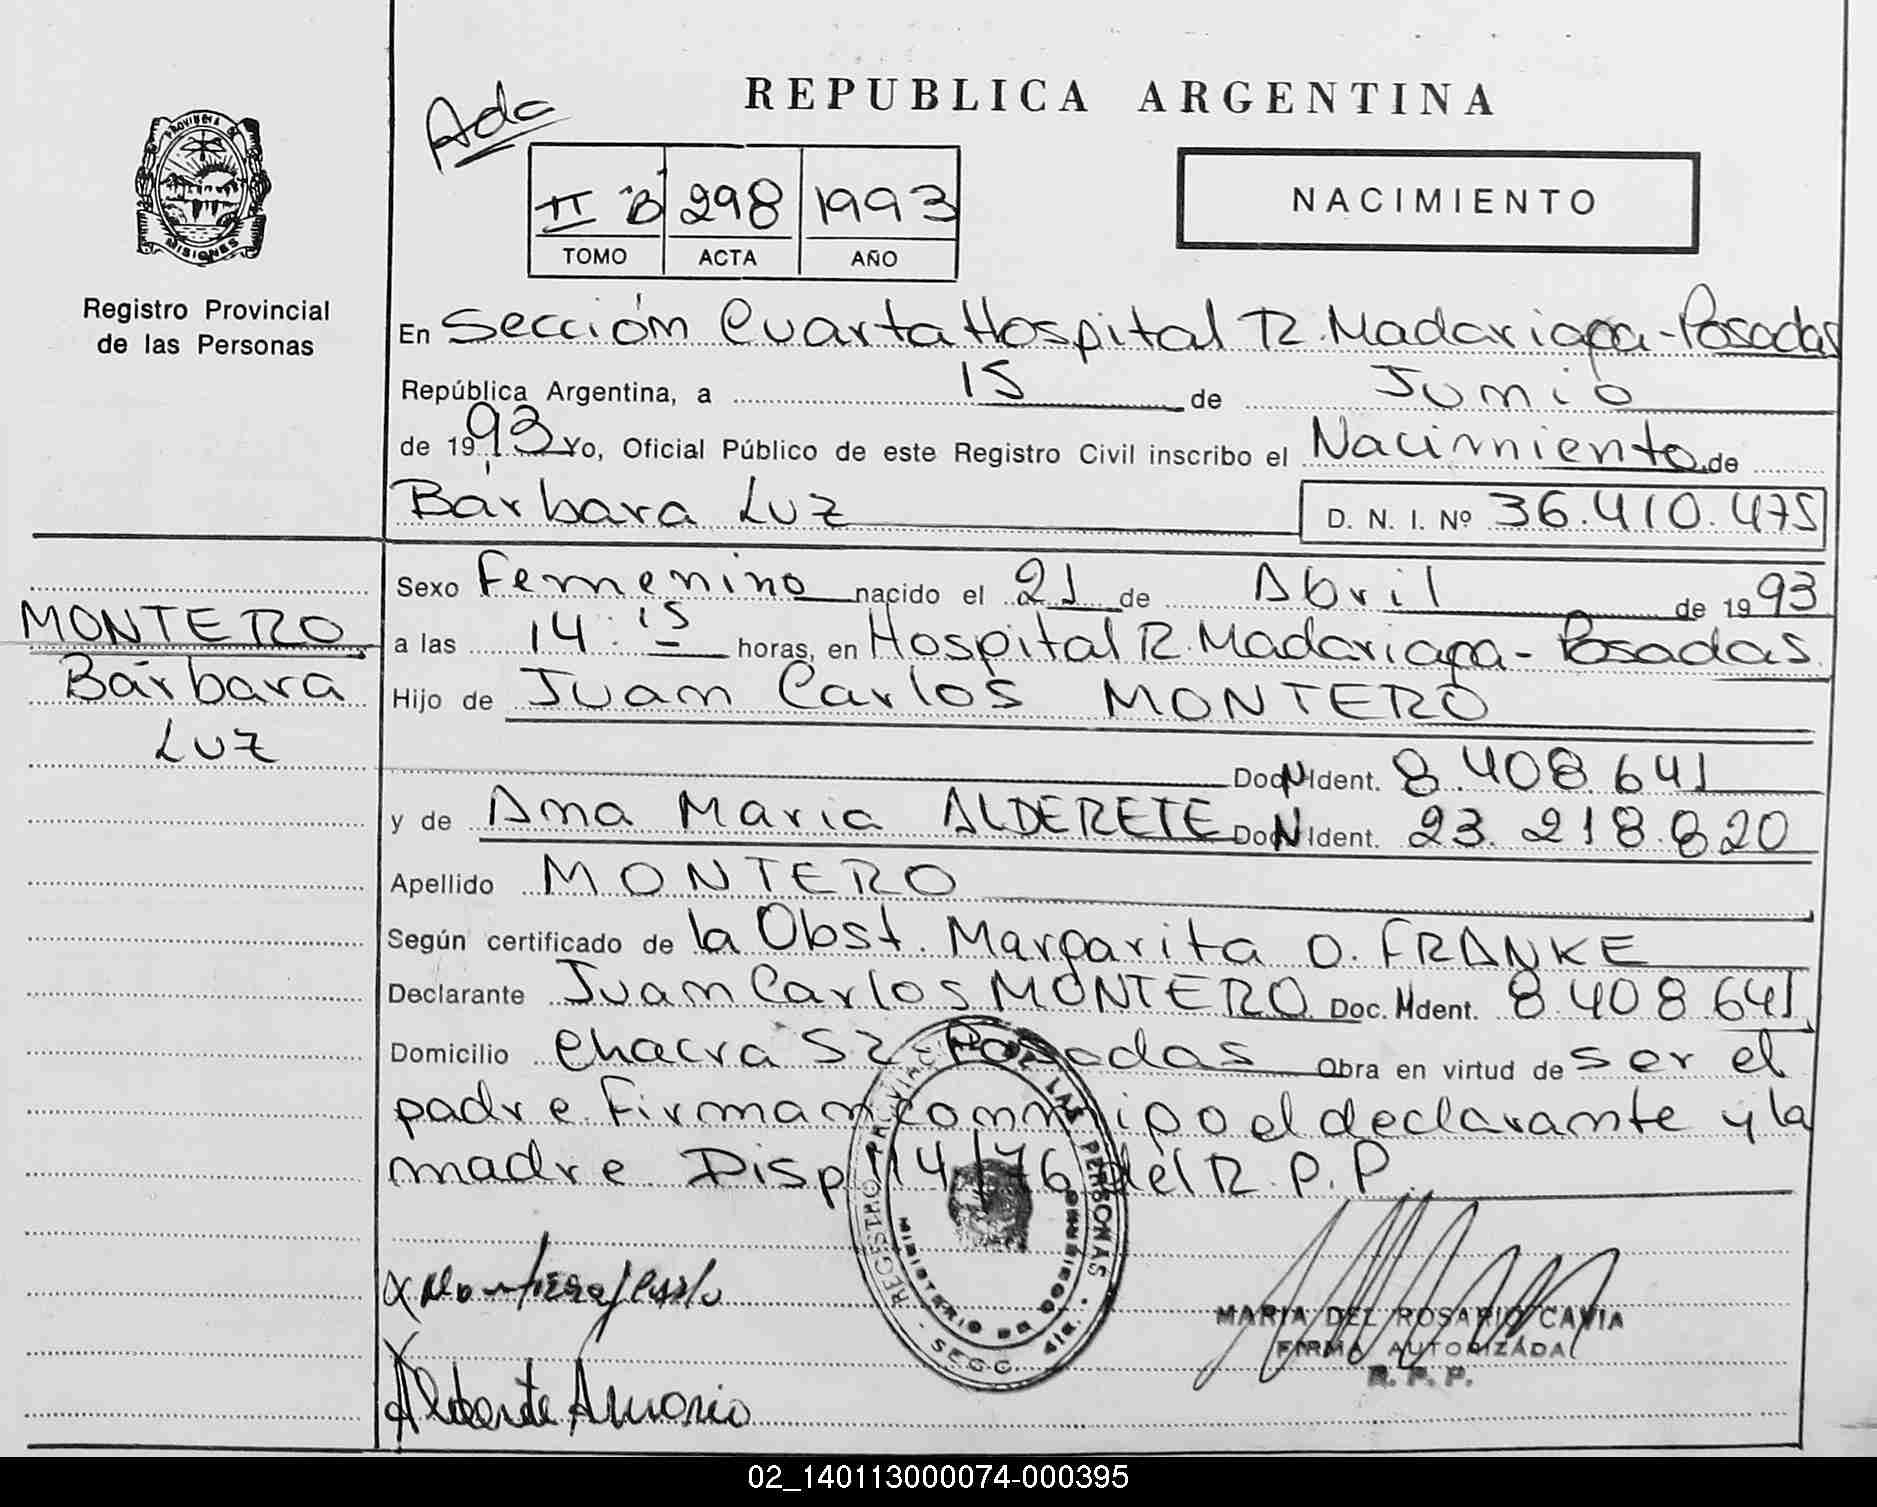 REPUBLICA ARGENTINA
Ada
PROVINCIA DE
MISIONES
Registro Provincial
de las Personas
II "B" 298 1993
TOMO ACTA AÑO
NACIMIENTO
En Sección Cuarta Hospital R. Madariaga - Posadas
República Argentina, a 15 de Junio
de 1993 Yo, Oficial Público de este Registro Civil inscribo el Nacimiento de
Bárbara Luz D. N. I. Nº 36.410.475
MONTERO
Bárbara
Luz
Sexo Femenino nacido el 21 de Abril de 1993
a las 14:15 horas, en Hospital R. Madariaga - Posadas.
Hijo de Juan Carlos MONTERO
Doc. N Ident. 8.408.641
y de Ana Maria ALDERETE Doc. N Ident. 23.218.820
Apellido MONTERO
Según certificado de la Obst. Margarita O. FRANKE
Declarante Juan Carlos MONTERO Doc. N Ident. 8.408.641
Domicilio Chacra 52 Posadas Obra en virtud de ser el
padre. Firman conmigo el declarante y la
madre. Disp. 114/76 del R.P.P.
REGISTRO PROVINCIAL DE LAS PERSONAS
MINISTERIO DE GOBIERNO
MARIA DEL ROSARIO CAVIA
FIRMA AUTORIZADA
R. P. P.
02_140113000074-000395